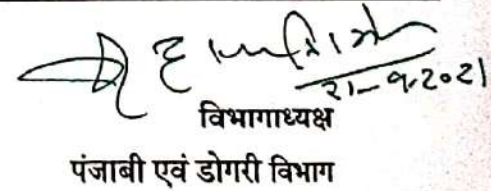 21-9-2021
विभागाध्यक्ष
पंजाबी एवं डोगरी विभाग